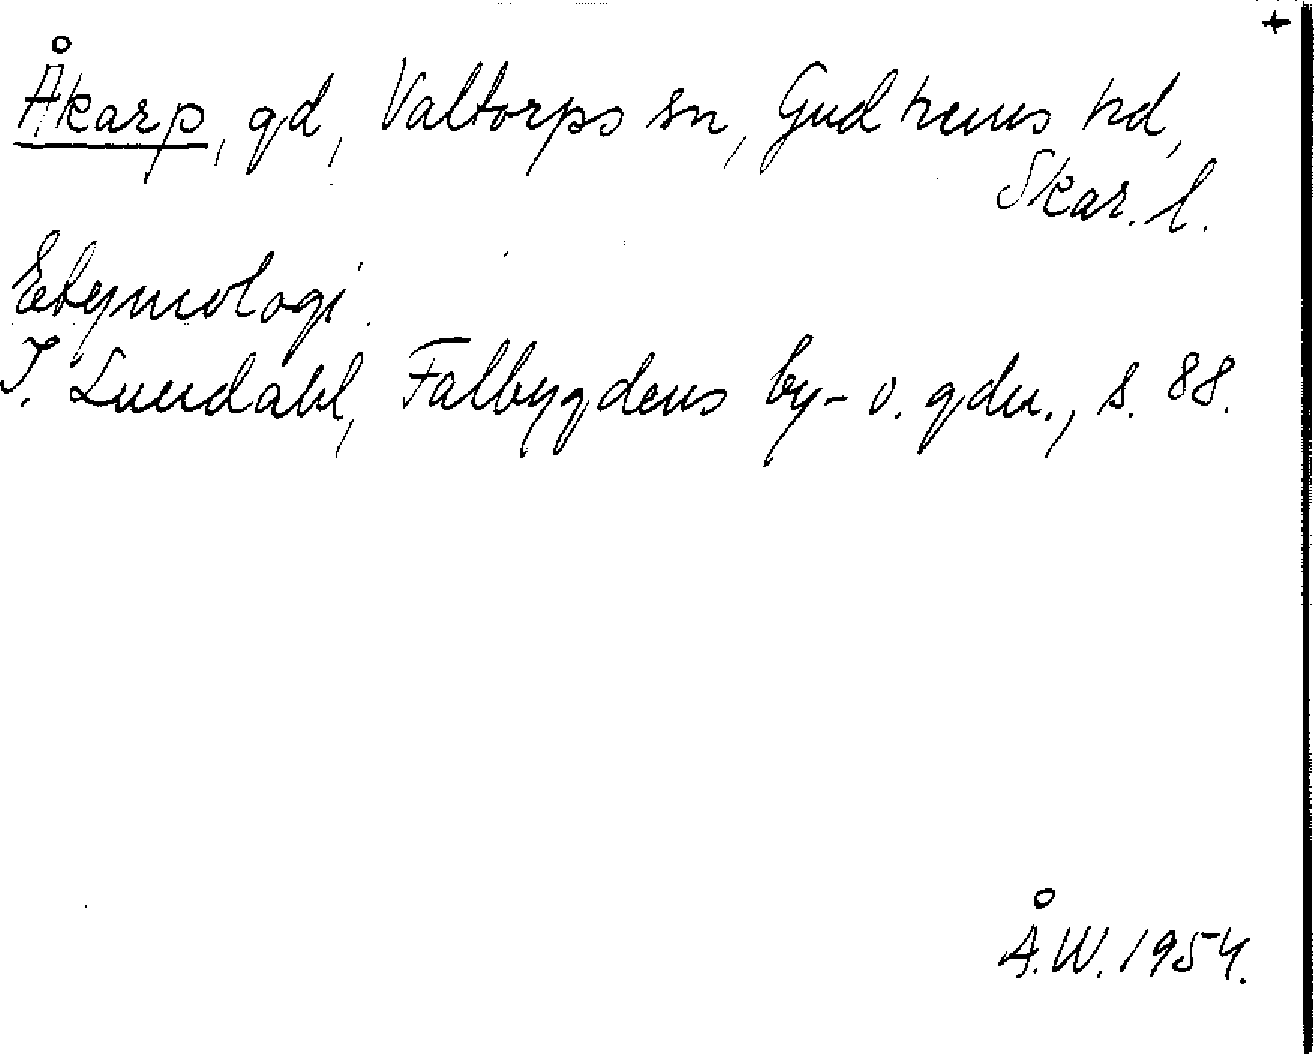 +
Åkarp, gd, Valtorps sn, Gudhems hd,
Skar. l.
Etymologi.
I. Lundahl, Falbygdens by- o. gdn., s. 88.
Å.W. 1954.